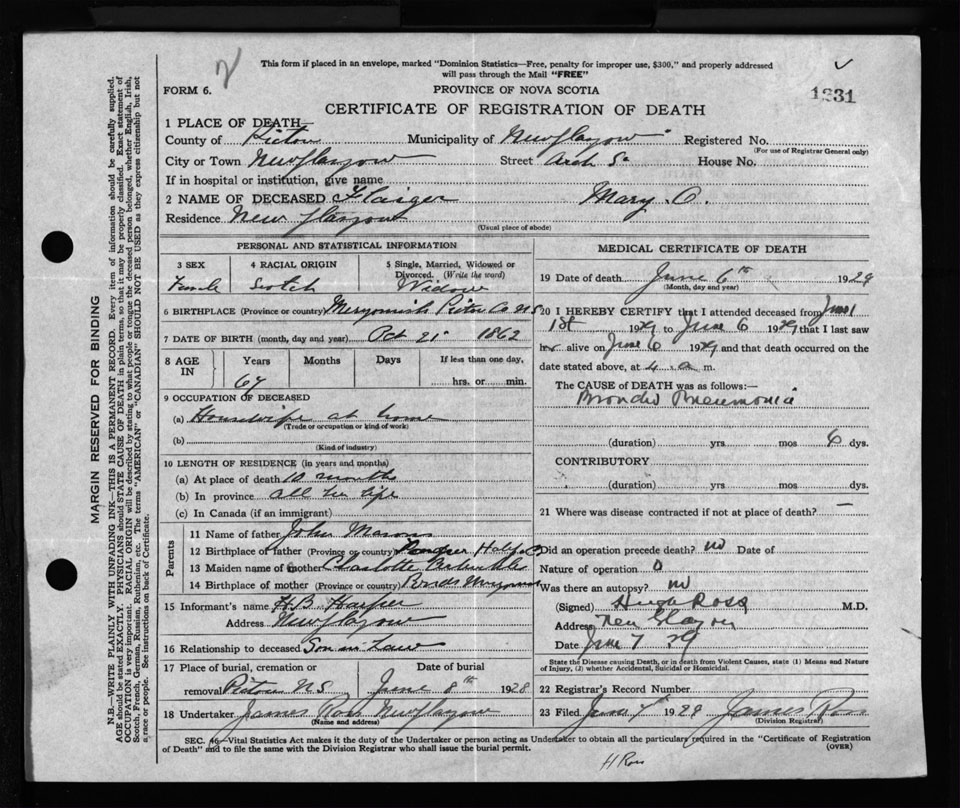 This form if placed in an envelope, marked "Dominion Statistics—Free, penalty for improper use, $300," and properly addressed
will pass through the Mail "FREE"
FORM 6.
PROVINCE OF NOVA SCOTIA
1331
CERTIFICATE OF REGISTRATION OF DEATH
1 PLACE OF DEATH—
County of Pictou Municipality of New Glasgow Registered No.
(For use of Registrar General only)
City or Town New Glasgow Street Arch St House No.
If in hospital or institution, give name
2 NAME OF DECEASED Mary O.
Residence New Glasgow
(Usual place of abode)
PERSONAL AND STATISTICAL INFORMATION
3 SEX
Female
4 RACIAL ORIGIN
Scotch
5 Single, Married, Widowed or Divorced. (Write the word)
Widow
6 BIRTHPLACE (Province or country) Merigomish Pictou Co N S
7 DATE OF BIRTH (month, day and year) Oct 21 1862
8 AGE IN
Years
67
Months
Days
If less than one day,
hrs. or min.
9 OCCUPATION OF DECEASED
(a) Housewife at home
(Trade or occupation or kind of work)
(b)
(Kind of industry)
10 LENGTH OF RESIDENCE (in years and months)
(a) At place of death 10 months
(b) In province all her life
(c) In Canada (if an immigrant)
Parents
11 Name of father John
12 Birthplace of father (Province or country)
13 Maiden name of mother Charlotte
14 Birthplace of mother (Province or country)
15 Informant's name H.B. Harper
Address New Glasgow
16 Relationship to deceased Son in Law
17 Place of burial, cremation or removal Pictou N S
Date of burial
June 8th 1928
18 Undertaker James Ross New Glasgow
(Name and address)
MEDICAL CERTIFICATE OF DEATH
19 Date of death June 6th 1929
(Month, day and year)
20 I HEREBY CERTIFY that I attended deceased from June
1st 1929 to June 6 1929 that I last saw
her alive on June 6 1929 and that death occurred on the
date stated above, at 4 a m.
The CAUSE of DEATH was as follows:—
Broncho Pneumonia
(duration) yrs mos 6 dys.
CONTRIBUTORY
(duration) yrs mos dys.
21 Where was disease contracted if not at place of death? —
Did an operation precede death? no Date of
Nature of operation 0
Was there an autopsy? no
(Signed) Hugh Ross M.D.
Address New Glasgow
Date June 7 29
State the Disease causing Death, or in death from Violent Causes, state (1) Means and Nature
of Injury, (2) whether Accidental, Suicidal or Homicidal.
22 Registrar's Record Number
23 Filed June 7 1929 James Ross
(Division Registrar)
SEC. 46—Vital Statistics Act makes it duty of the Undertaker or person acting as Undertaker to obtain all the particulars required in the "Certificate of Registration
of Death" and to file the same with the Division Registrar who shall issue the burial permit.
(OVER)
H Ross
MARGIN RESERVED FOR BINDING
N.B.—WRITE PLAINLY WITH UNFADING INK—THIS IS A PERMANENT RECORD. Every item of information should be carefully supplied.
AGE should be stated EXACTLY. PHYSICIANS should STATE CAUSE OF DEATH in plain terms, so that it may be properly classified. Exact statement of
OCCUPATION is very important. RACIAL ORIGIN will be described by stating to what people or tongue the deceased person belonged, whether English, Irish,
Scotch, French, German, Russian, Ruthenian, etc. The terms "AMERICAN" or "CANADIAN" SHOULD NOT BE USED as they express citizenship but not
a race or people. See instructions on back of Certificate.